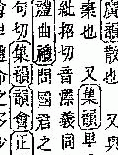 韻散也
棄也又集韻卑
紕招切音漂義同
禮曲禮問國君之
句切集韻韻會正